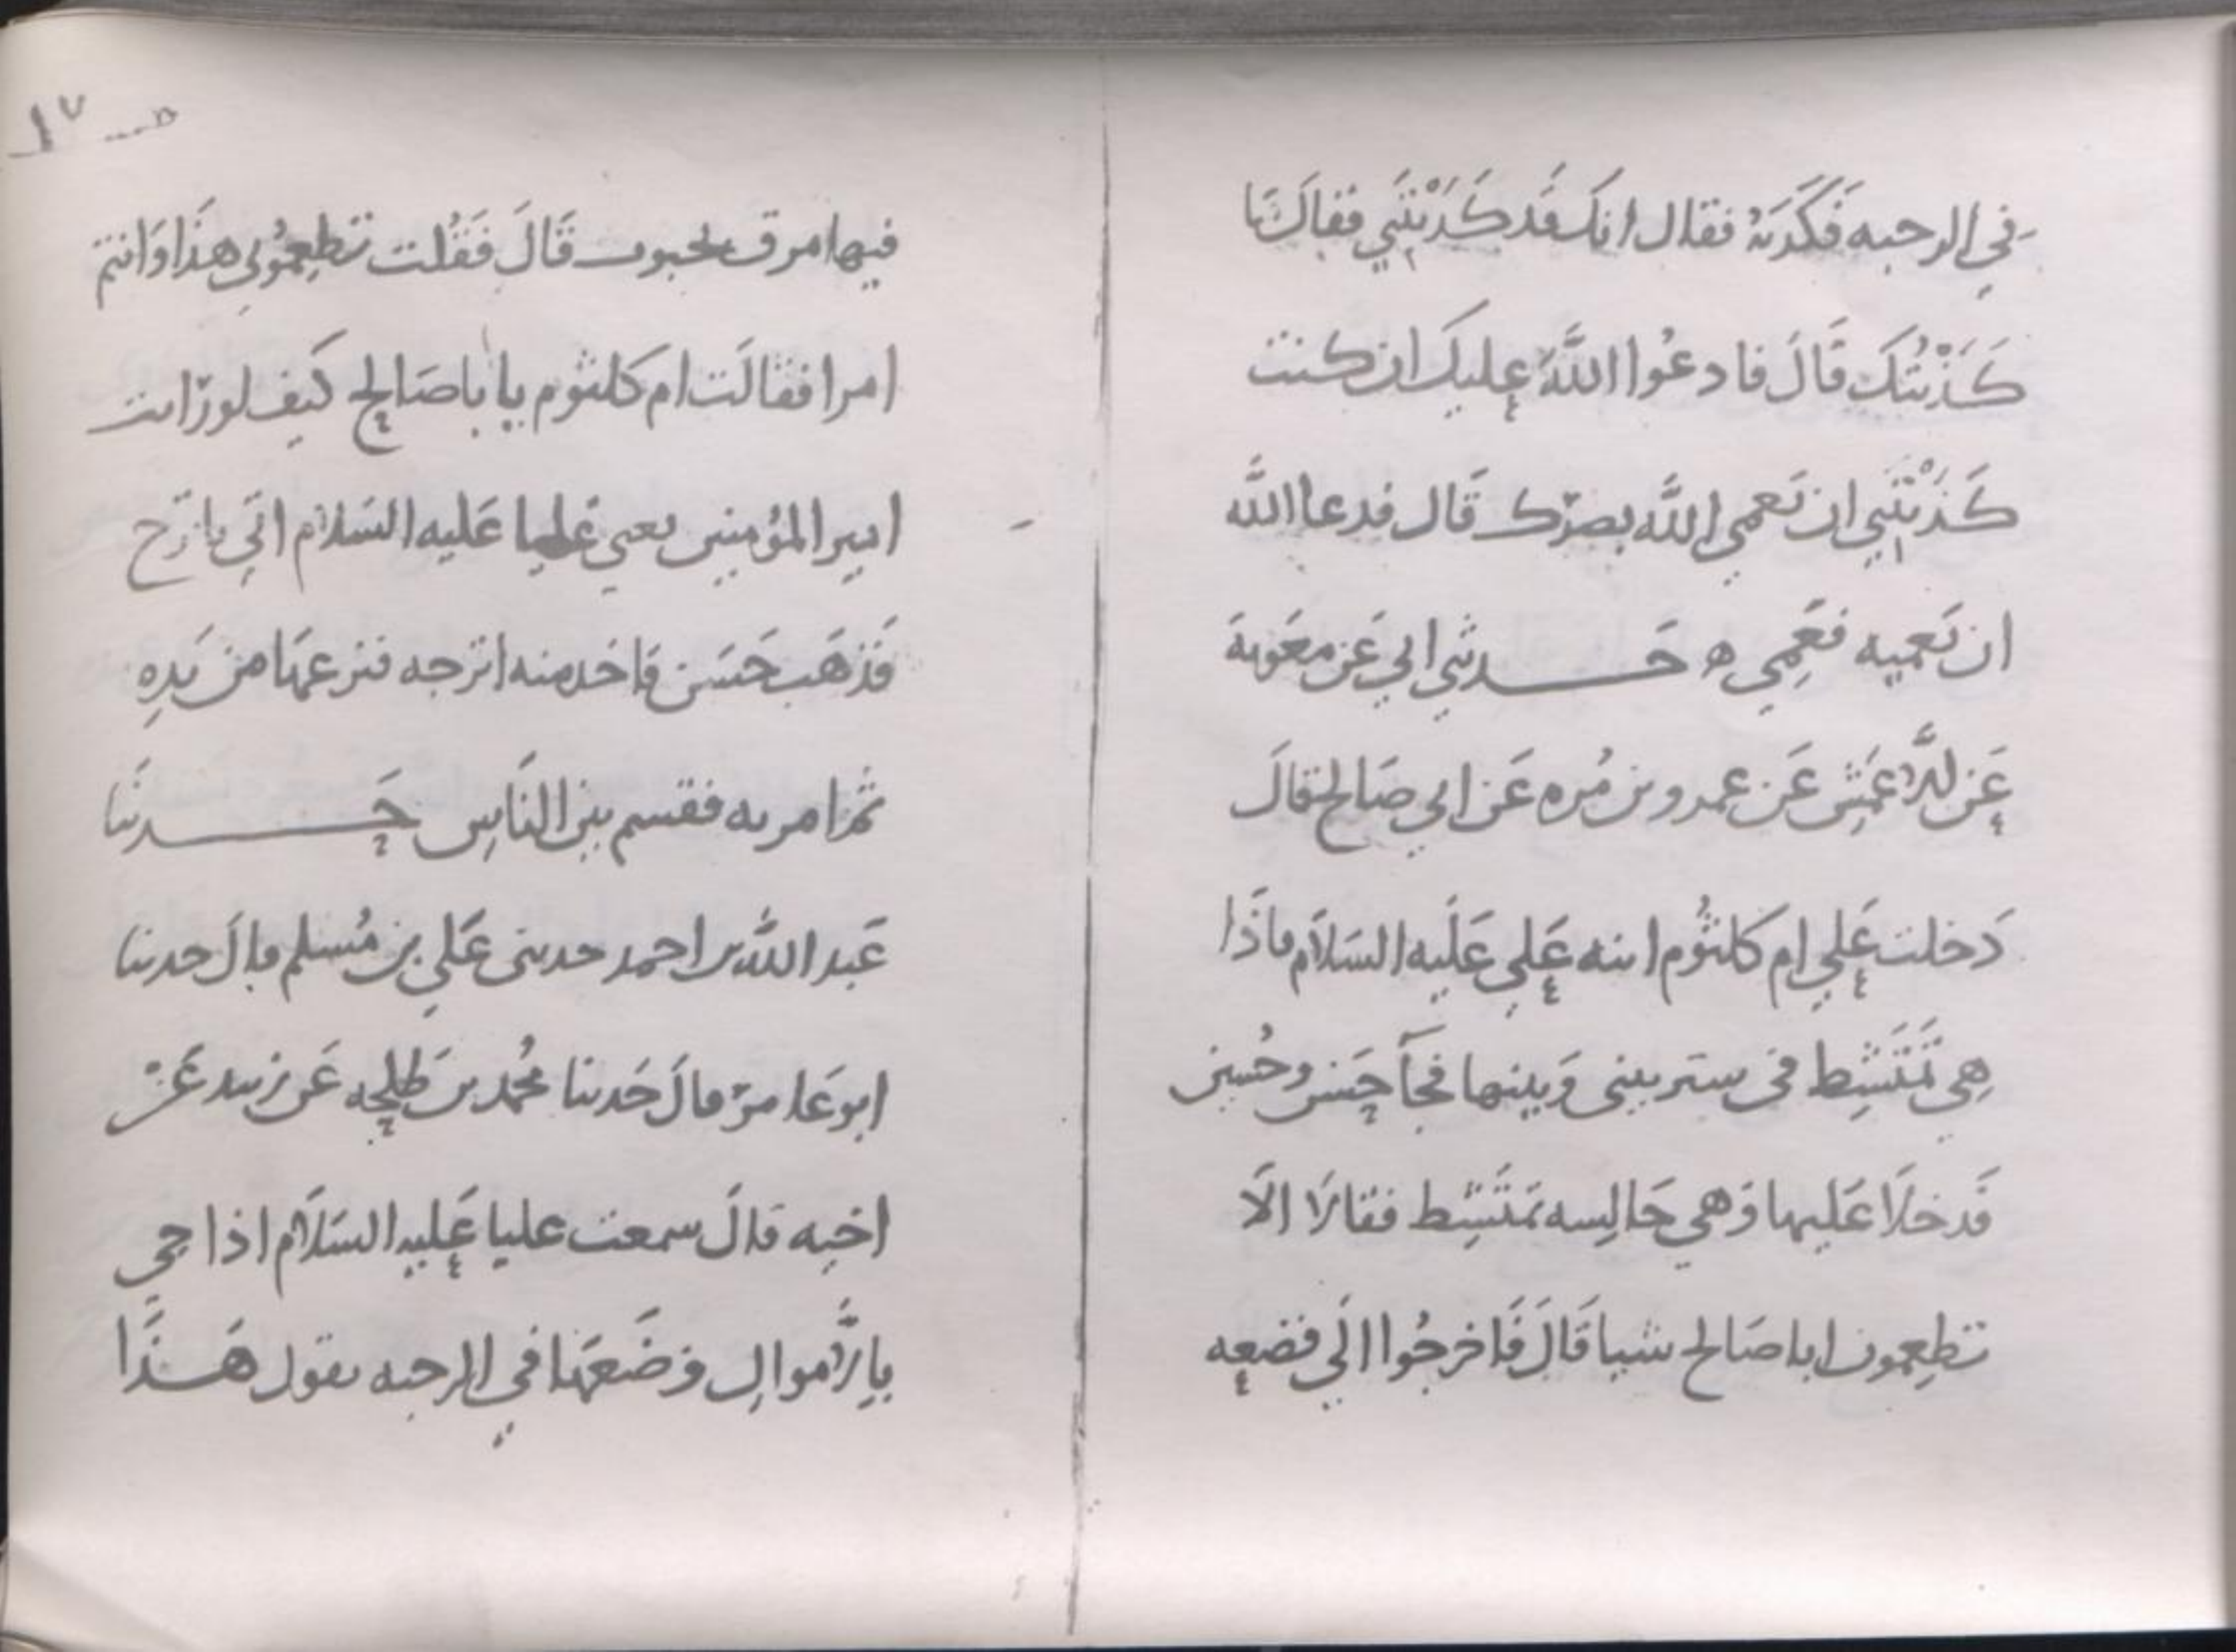 في الرحبه فَكَذَبَهُ فقال انك قَد كَذَبْتَنَي فقال مَا
كَذَبْتُكَ قَالَ فادعُوا اللَّهَ عليك ان كنت
كَذَبْتَنِي ان تَعمي اللَّه بصرَك قَال فدعا اللَّه
ان تَعميه فعَمِي ه حَدثني ابي عَن معَوية
عَن الاَّعمَش عَن عمرو بن مُره عَن ابي صَالح قالَ
دَخلت عَلي ام كلثُوم ابنه عَلي عَلَيه السَلاَم فاذَا
هِي تَمَتَشِط في ستر بيني وَبينها فجآ حَسَن وحُسين
فَدخلاَ عَليها وَهي جَالِسه تمتَشِط فقالاَ الاَ
تطعِمون ابا صَالح شيا قَالَ فَاخرجُوا الَي قصعه
١٧
فيها مرق بحبوب قَالَ فَقُلت تطعِمُوني هذَا وَانتم
امرا فقالَت ام كلثوم يا اباصَالح كَيف لو رَايت
امير المؤمنين يعني عَليا عَليه السَلام اتَي باترَج
فَذهَب حَسَن فاخد منه اترجه فنزعهَا من يَدِه
ثمَ امر به فقسم بين النَاسِ حَدثنَا
عَبد اللَّه بن احمد حدثني عَلي بن مُسلم قالَ حدثنا
ابو عَامر قالَ حَدثنا محُمد بن طَلحه عَن زبيد عَن
اخيه قالَ سمعت عليا عَليه السَلاَم اذا جي
بالاَّموالِ وَضَعهَا في الرحبه يقول هَذَا